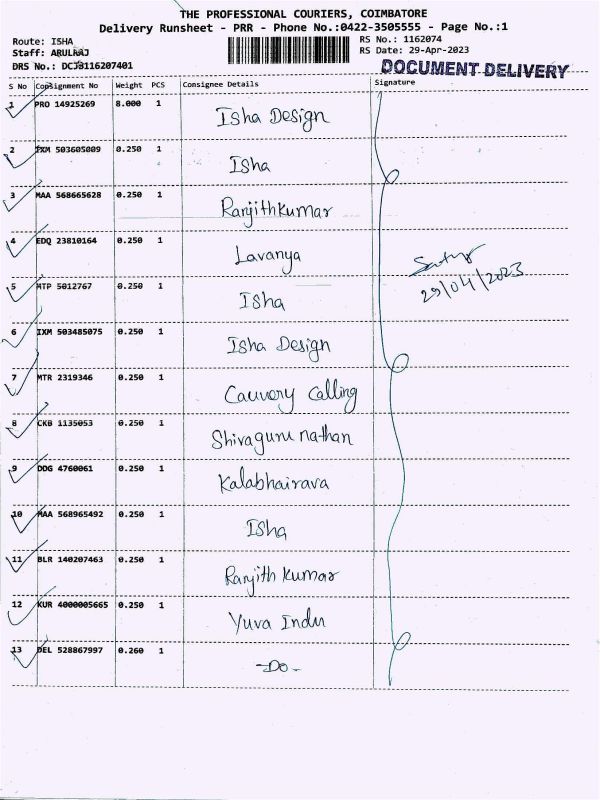 THE PROFESSIONAL COURIERS, COIMBATORE
Delivery Runsheet - PRR - Phone No.:0422-3505555 - Page No.:1
Route: ISHA RS No.: 1162074
Staff: ARULRAJ RS Date: 29-Apr-2023
DRS No.: DCJB116207401 DOCUMENT DELIVERY
S No Consignment No Weight PCS Consignee Details Signature
1 PRO 14925269 8.000 1 Isha Design
2 IXM 503605009 0.250 1 Isha
3 MAA 568665628 0.250 1 Ranjithkumar
4 EDQ 23810164 0.250 1 Lavanya
29/04/2023
5 MTP 5012767 0.250 1 Isha
6 IXM 503485075 0.250 1 Isha Design
7 MTR 2319346 0.250 1 Cauvery Calling
8 CKB 1135053 0.250 1 Shivagurunathan
9 DDG 4760061 0.250 1 Kalabhairava
10 MAA 568965492 0.250 1 Isha
11 BLR 140207463 0.250 1 Ranjith kumar
12 KUR 4000005665 0.250 1 Yuva Indu
13 DEL 528867997 0.260 1 -Do-